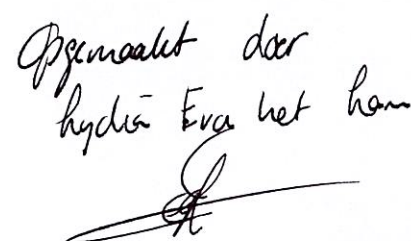 Opgemaakt door
Lydia Eva het ham